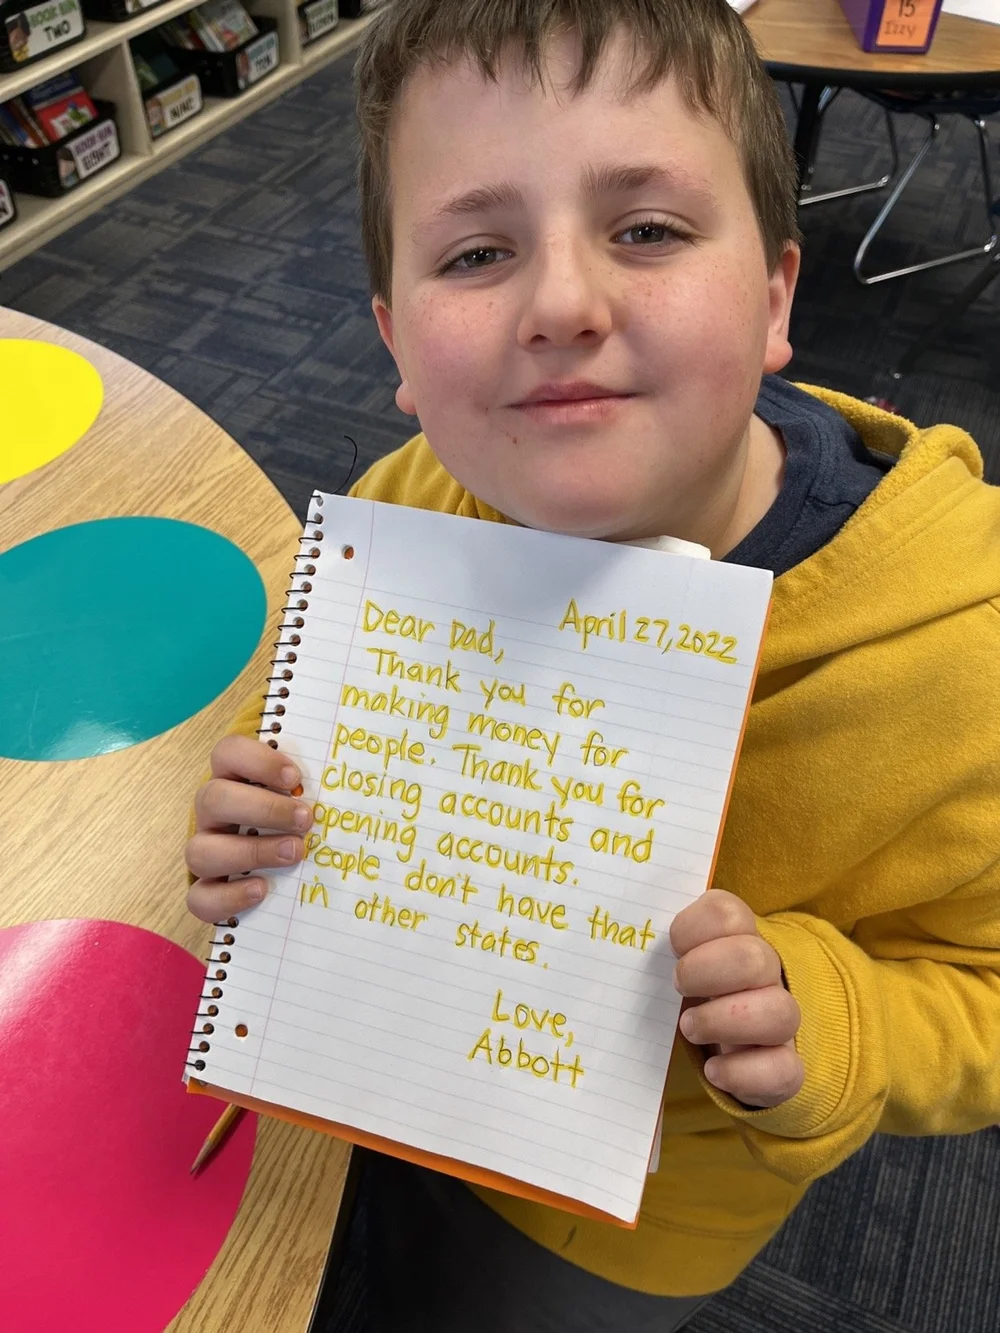 BOOK BIN
TWO
BOOK BIN
EIGHT
NINE
15
Izzy
April 27, 2022
Dear Dad,
Thank you for
making money for
people. Thank you for
closing accounts and
opening accounts.
People don't have that
in other states.
Love,
Abbott